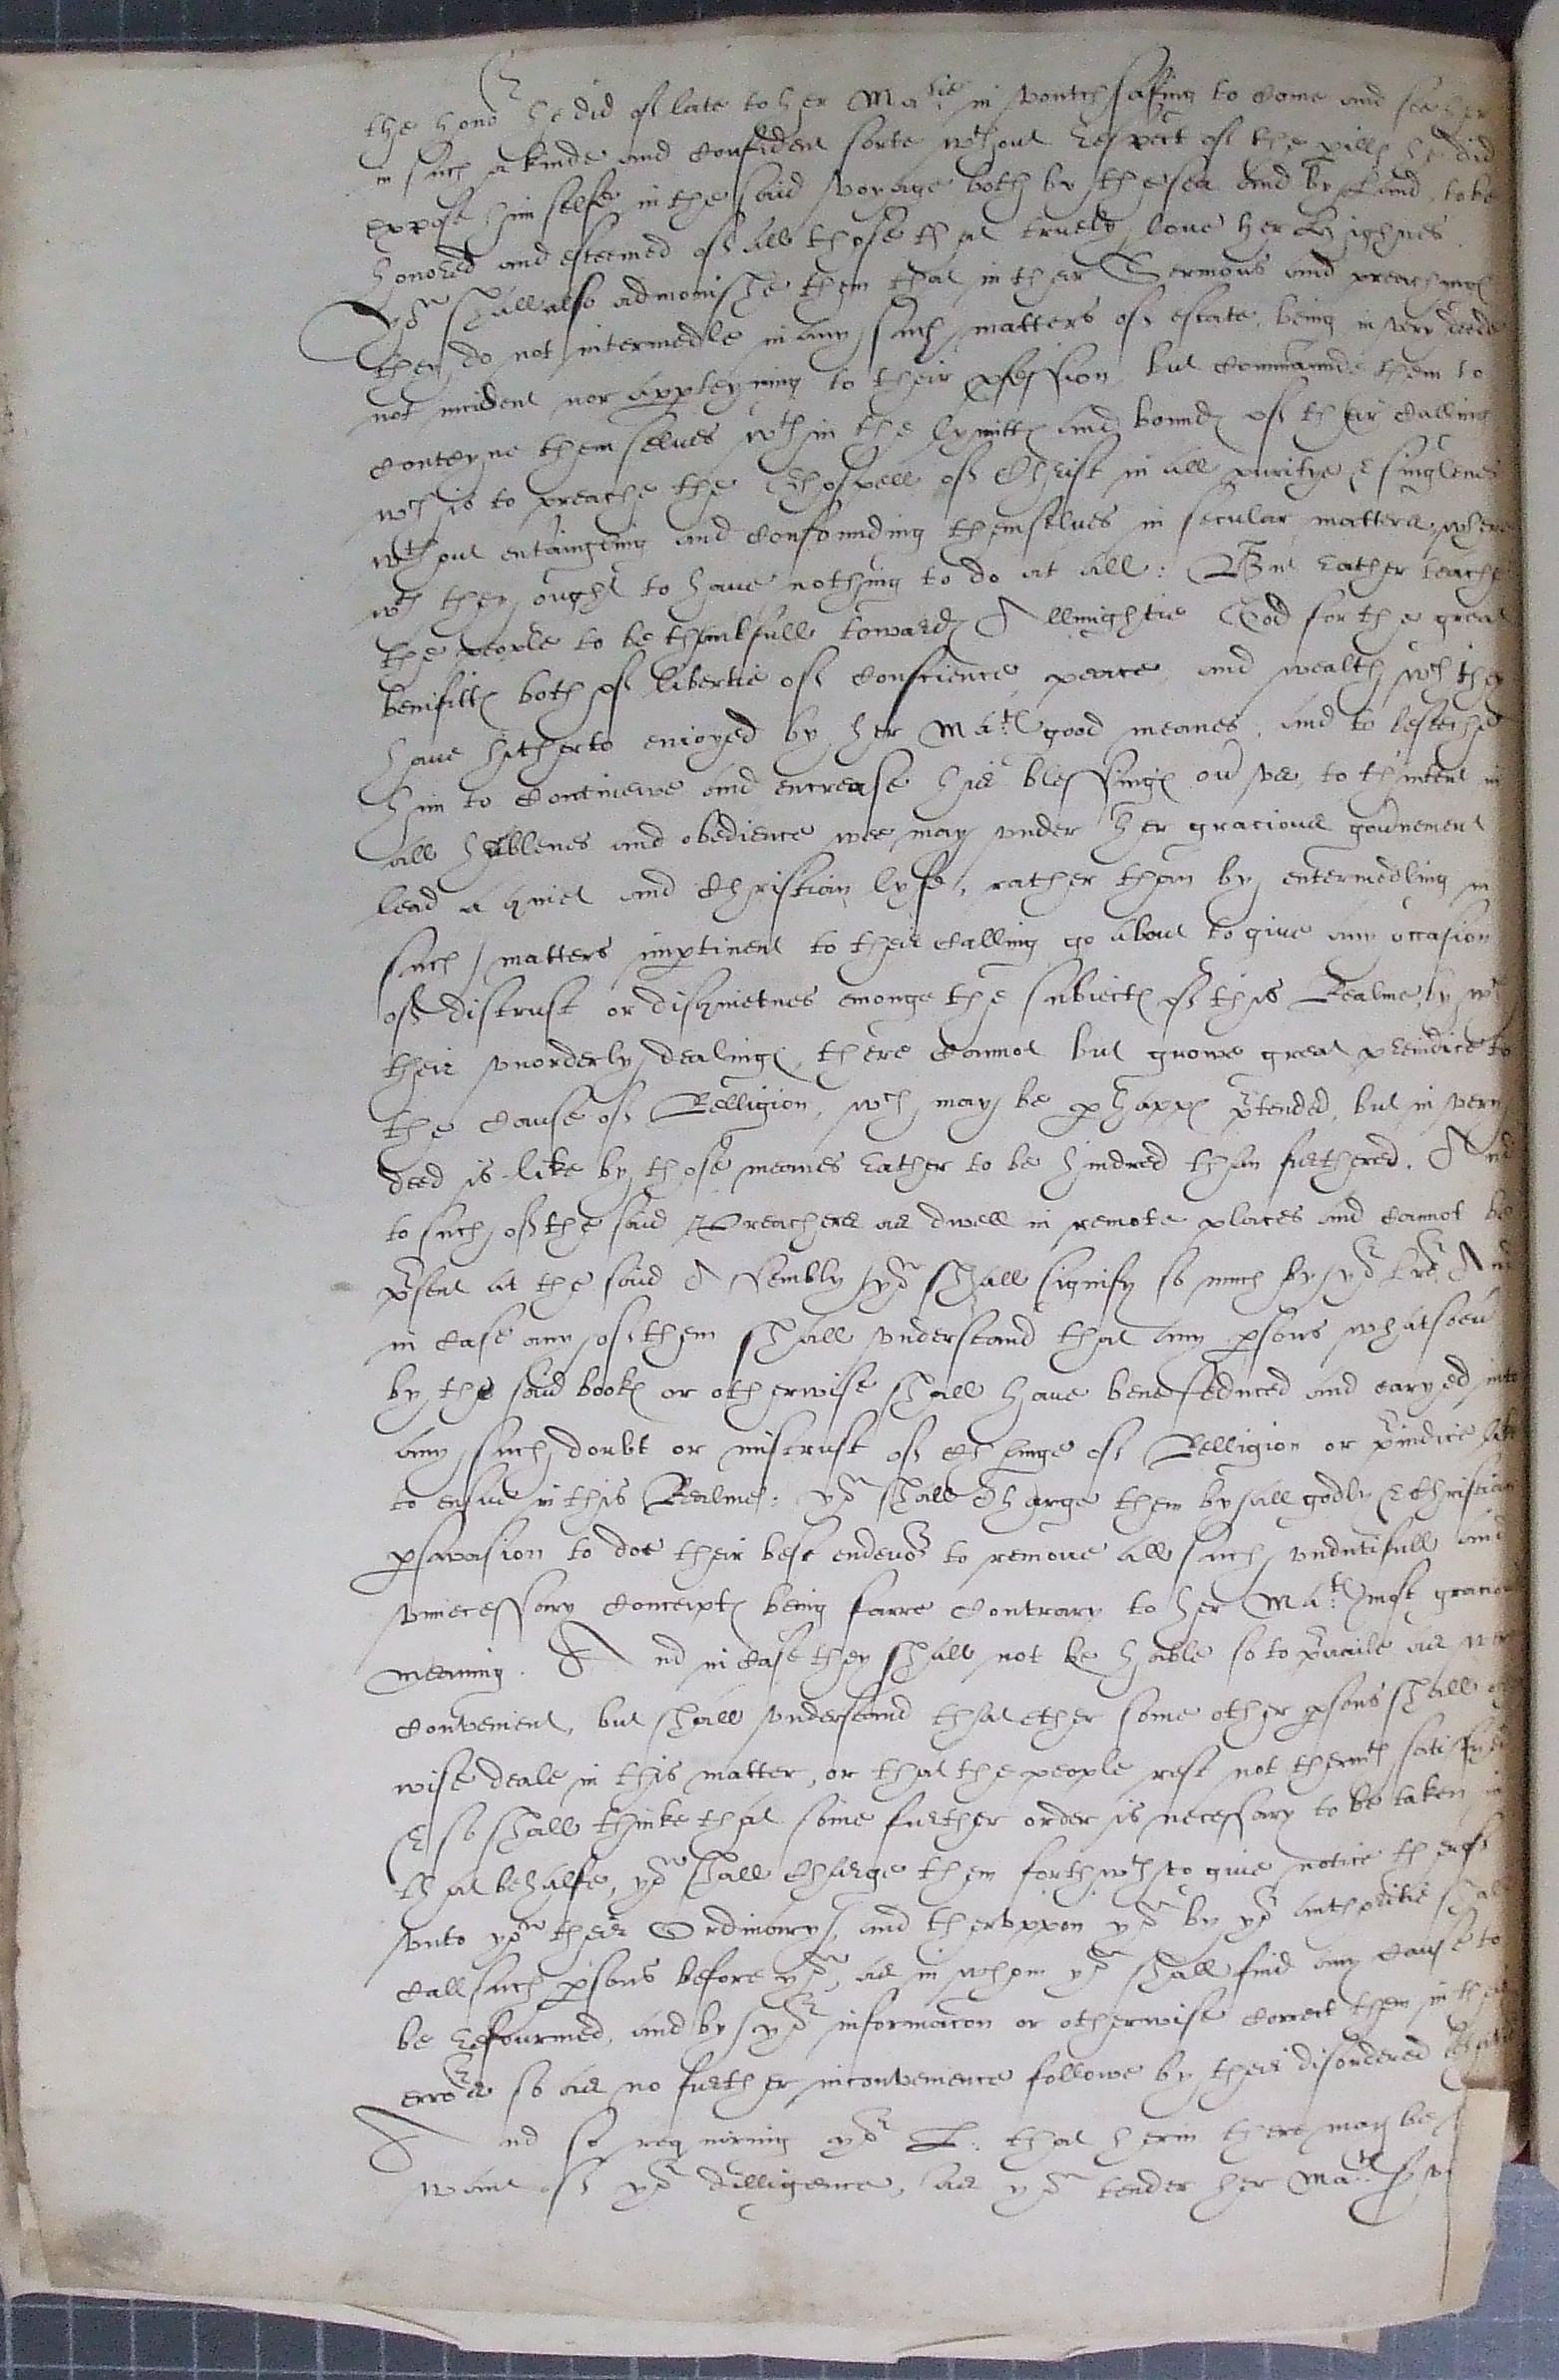 the hono^r he did of late to her Ma^tie in vouchsafing to come and see her
in such a kinde and confident sorte w^thout respect of the perills he did
expose himselfe in the said voyage both by the sea and by land, to be
honored and esteemed of all those that truely love her Highnes.
yo^r shall also admonishe them that in their Sermons and preachings
they do not intermedle in any such matters of estate, being in very deede
not incident nor apperteyning to their p̱fession, but commaunde them to
conteyne themselues w^thin the lymitts and bounds of their calling
w^ch is to preache the Ghospell of Christ in all puritye & singlenes
w^thout entangling and confounding themselues in secular matters, where
w^th they ought to haue nothing to do at all: But rather teache
the people to be thankfull towards Allmightie God for the great
benifitts both of libertie of conscience, peace, and wealth w^ch they
haue hitherto enioyed by her Ma^ts good meanes, and to beseche
him to continewe and encrease his blessings ou^r vs, to thintent in
all humblenes and obedience wee may vnder her gracious gou^rnement
lead a quiet and Christian lyfe, rather than by entermedling in
such matters imp̱tinent to their calling go about to giue any occasion
of distrust or disquietnes emonge the subiects of this Realme, by w^ch
their vnorderly dealings, there cannot but growe great preiudice to
the cause of Relligion, w^ch may be p̱happs p^rtended, but in very
deed is like by those meanes rather to be hindred than furthered. And
to such of the said Preachers as dwell in remote places and cannot be
p^rsent at the said Assembly yo^r shall signify so much by yo^r l^re. And
in case any of them shall vnderstand that any p̱sons whatsoeu^r
by the said books or otherwise shall haue bene seduced and caryed into
any such doubt or mistrust of change of Relligion or p^riudice like
to ensue in this Realme: yo^r shall charge them by all godly & christian
p̱swasion to doe their best endeuo^r to remoue all such vndutifull and
vnnecessary conceipts being farre contrary to her Ma^ts most gracious
meaning. And in case they shall not be hable so to p^ruaile as were
convenient, but shall vnderstand that ether some other p̱sons shall other
wise deale in this matter, or that the people rest not therw^th satisfyed
& so shall thinke that some further order is necessary to be taken in
that behalfe, yo^r shall charge them forthw^th to giue notice therof
vnto yo^r their Ordinary, and thervppon yo^r by yo^r authoritie shall
call such p̱sons before yo^r, as in whom yo^r shall find any cause to
be refourmed, and by yo^r informacon or otherwise correct them in their
erro^rs so as no further inconvenience followe by their disordered
And so requiring yo^r L. that herin there may be
want of yo^r dilligence, as yo^r tender her Ma^ts